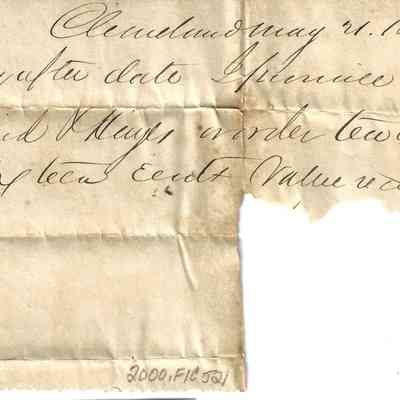 Cleveland May 21. 1
after date I promise
& Hayes or order ten
teen Cents Value re
2000.F1C521